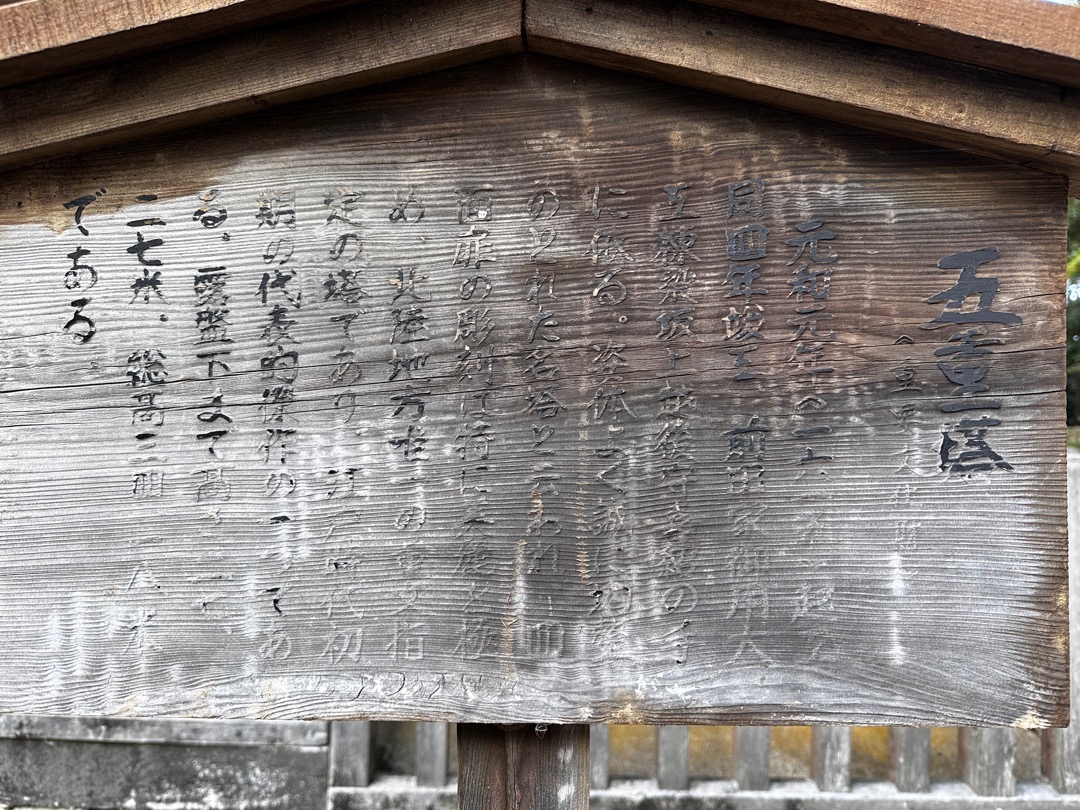 五重塔
（重要文化財）
元和元年（一六一五）起工
同四年竣工 前田家御用大
工棟梁坂上越後守嘉紹の手
に依る。姿体よく誠に均衡
のとれた名塔と云われ 四
面扉の彫刻は特に
め、北陸地方唯一の重文指
定の塔であり、江戸時代初
期の代表的傑作の一つであ
る。露盤下まで高さ 二
二七米。総高三四 一八米
である。